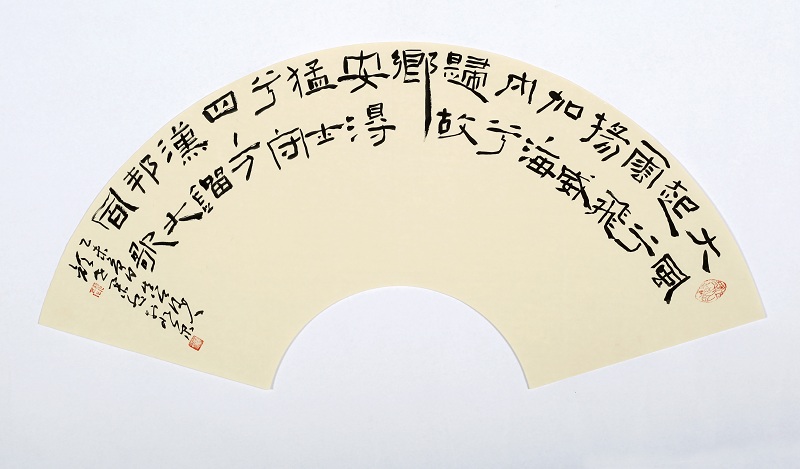 大風
起兮
雲飛
揚威
加海
内兮
歸故
鄉
安得
猛士
兮守
四方
漢劉
邦大
風歌
乙未